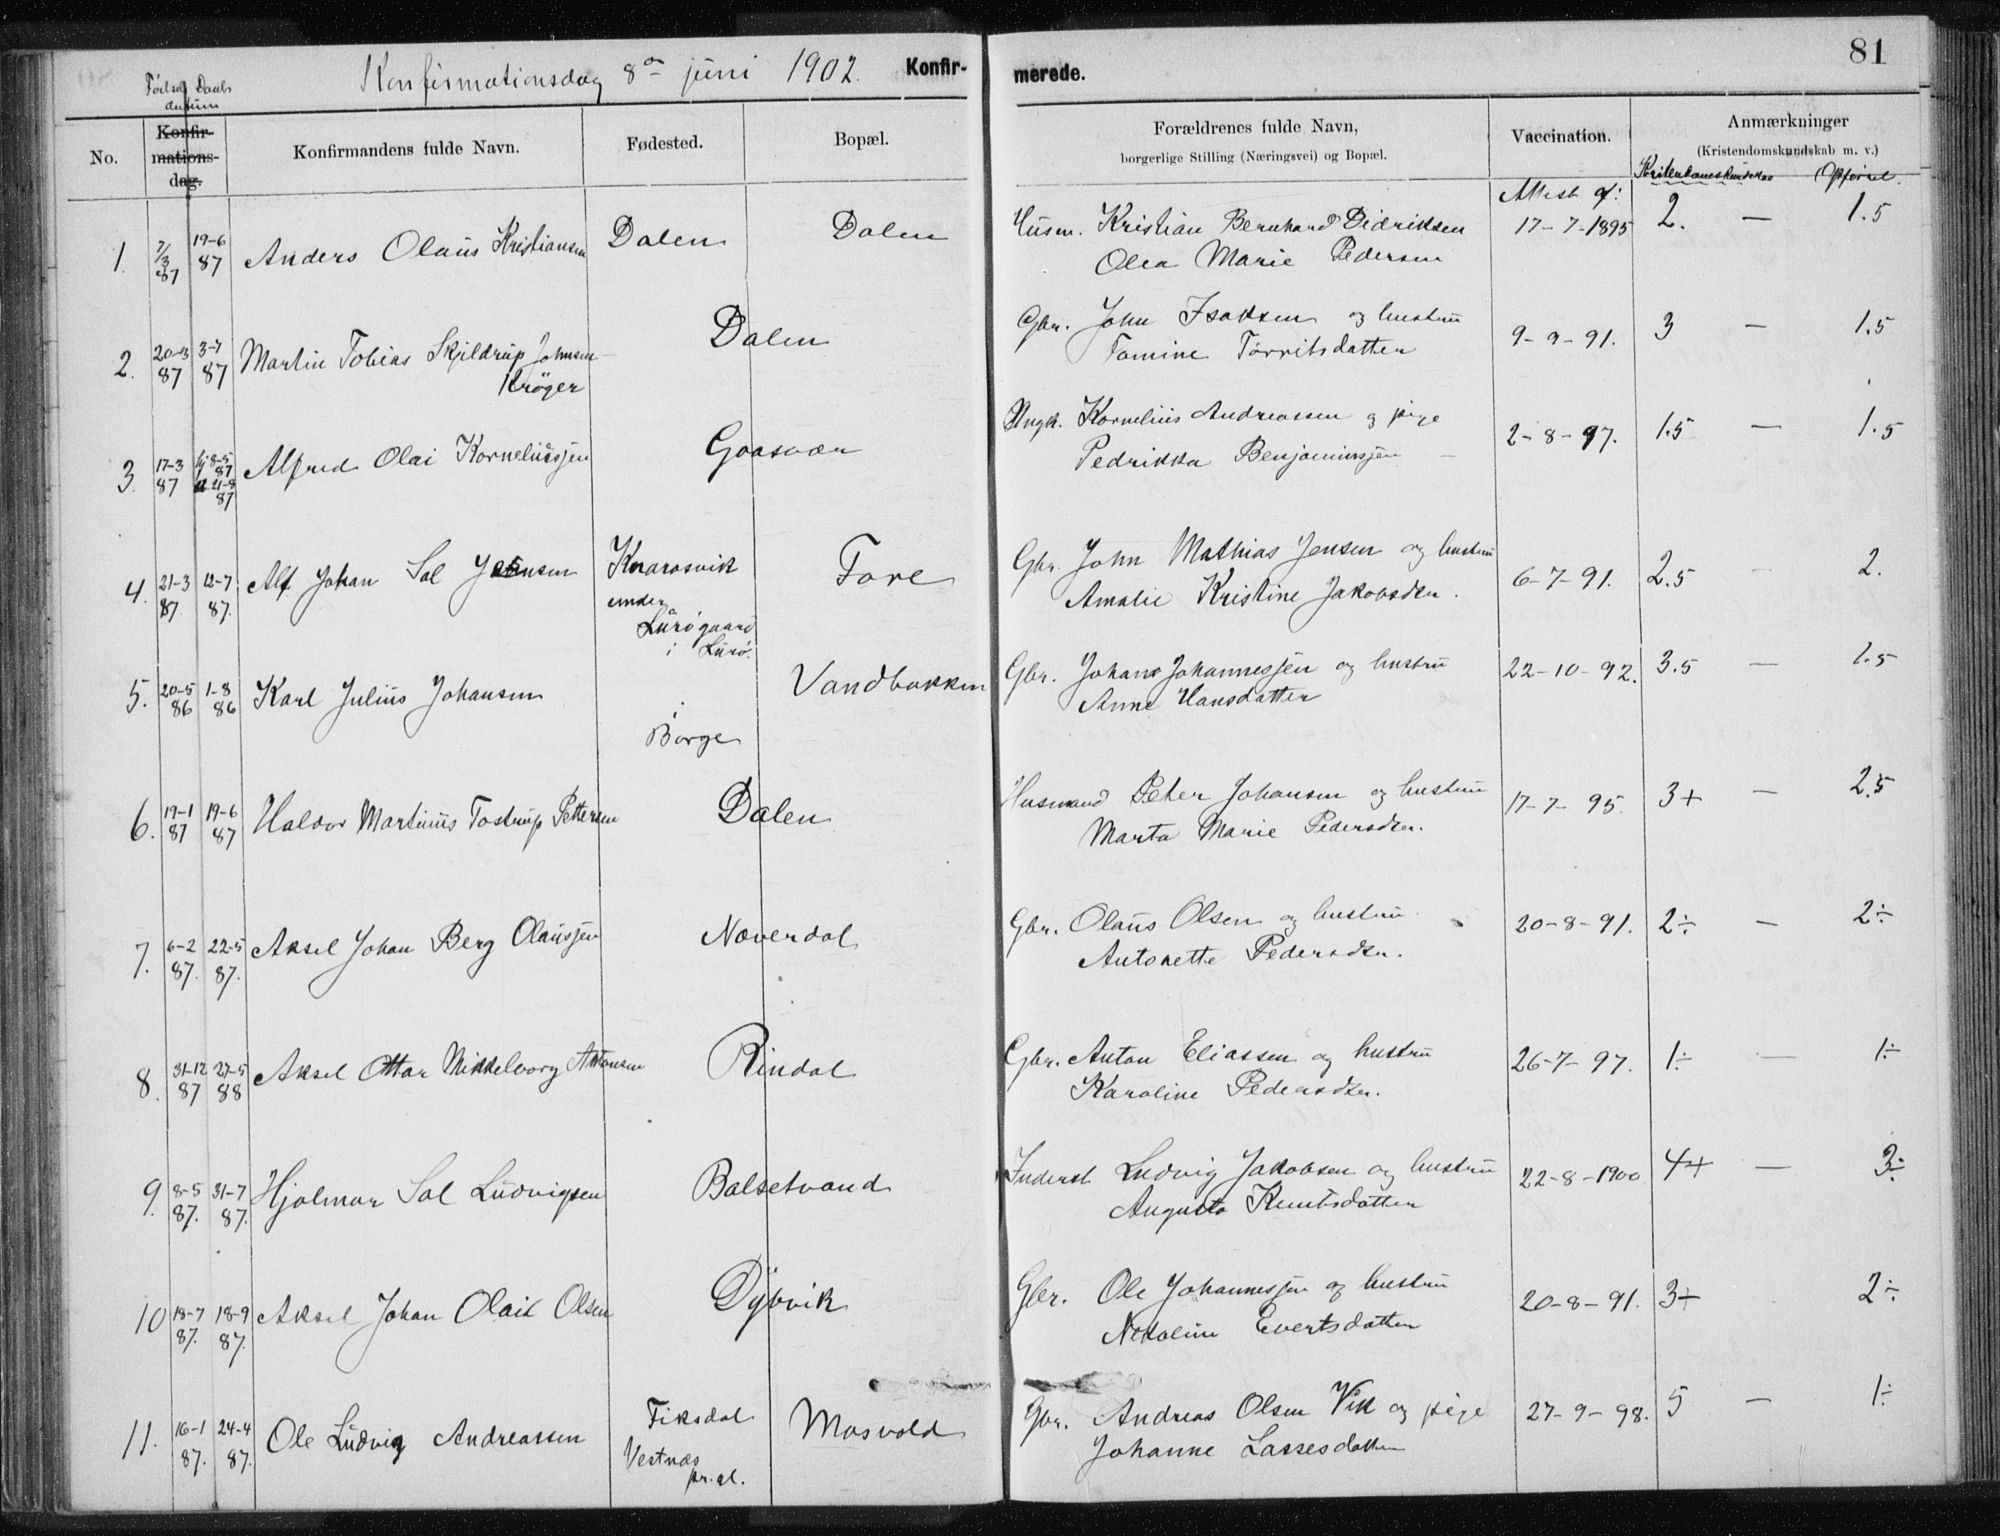 81
Konfirmationsdag 8de juni 1902. Konfir-merede.
Fødsels Daabs
datum
No. Konfir-mations-dag. Konfirmandens fulde Navn. Fødested. Bopæl. Forældrenes fulde Navn, borgerlige Stilling (Næringsvei) og Bopæl. Vaccination. Anmærkninger (Kristendomskundskab m. v.)
Attest af: Opførsel.
1. 7/3 87 19-6 87 Anders Olaus Kristiansen Dalen Dalen Husm. Kristian Bernhard Didriksen 17-7-1895 2. — 1.5
Olea Marie Pedersen
2. 20-3 87 3-7 87 Martin Tobias Skjildrup Johnsen Dalen Gbr. John Isaksen og hustru 9-9-91. 3 — 1.5
Krøger Tomine Torritsdatter
3. 17-3 87 hj. 8-5 87 21-8 87 Alfred Olai Korneliussen Gaasvær Ungk. Kornelius Andreassen og pige 2-8-97. 1.5 — 1.5
Pedrikka Benjaminsen
4. 21-3 87. 12-7 87. Alf Johan Sal Jensen Knarasvik Fore Gbr. John Mathias Jensen og hustru 6-7-91. 2.5 — 2.
under Lurøgaard i Lurø. Amalie Kristine Jakobsdtr.
5. 20-5 86 1-8 86 Karl Julius Johansen Vandbakken Gbr. Johan Johannessen og hustru 22-10-92. 3.5 — 1.5
i Borge Anne Hansdatter
6. 19-1 87 19-6 87 Haldor Martinus Tostrup Pettersen Dalen Husmand Peter Johansen og hustru 17-7-95. 3+ — 2.5
Marta Marie Pedersdtr.
7. 6-2 87. 22-5 87. Aksel Johan Berg Olaussen Næverdal Gbr. Olaus Olsen og hustru 20-8-91. 2÷ — 2÷
Antonette Pedersdtr.
8. 31-12 87 27-5 88 Aksel Ottar Mikkelborg Antonsen Rindal Gbr. Anton Eliassen og hustru 26-7-97. 1÷ — 1÷
Karoline Pedersdtr.
9. 8-5 87. 31-7 87. Hjalmar Sal Ludvigsen Balsetvand Inderst Ludvig Jakobsen og hustru 22-8-1900 4+ — 3÷
Augusta Knutsdatter
10 18-7 87. 18-9 87. Aksel Johan Olai Olsen Dybvik Gbr. Ole Johannessen og hustru 20-8-91. 3+ 2÷
Nikoline Evertsdatter
11. 16-1 87. 24-4 87. Ole Ludvig Andreassen Fiksdal Masvold Gbr. Andreas Olsen Vik og pige 27-9-98. 5 — 1÷
Vestnæs pr.gl. Johanne Lassesdatter